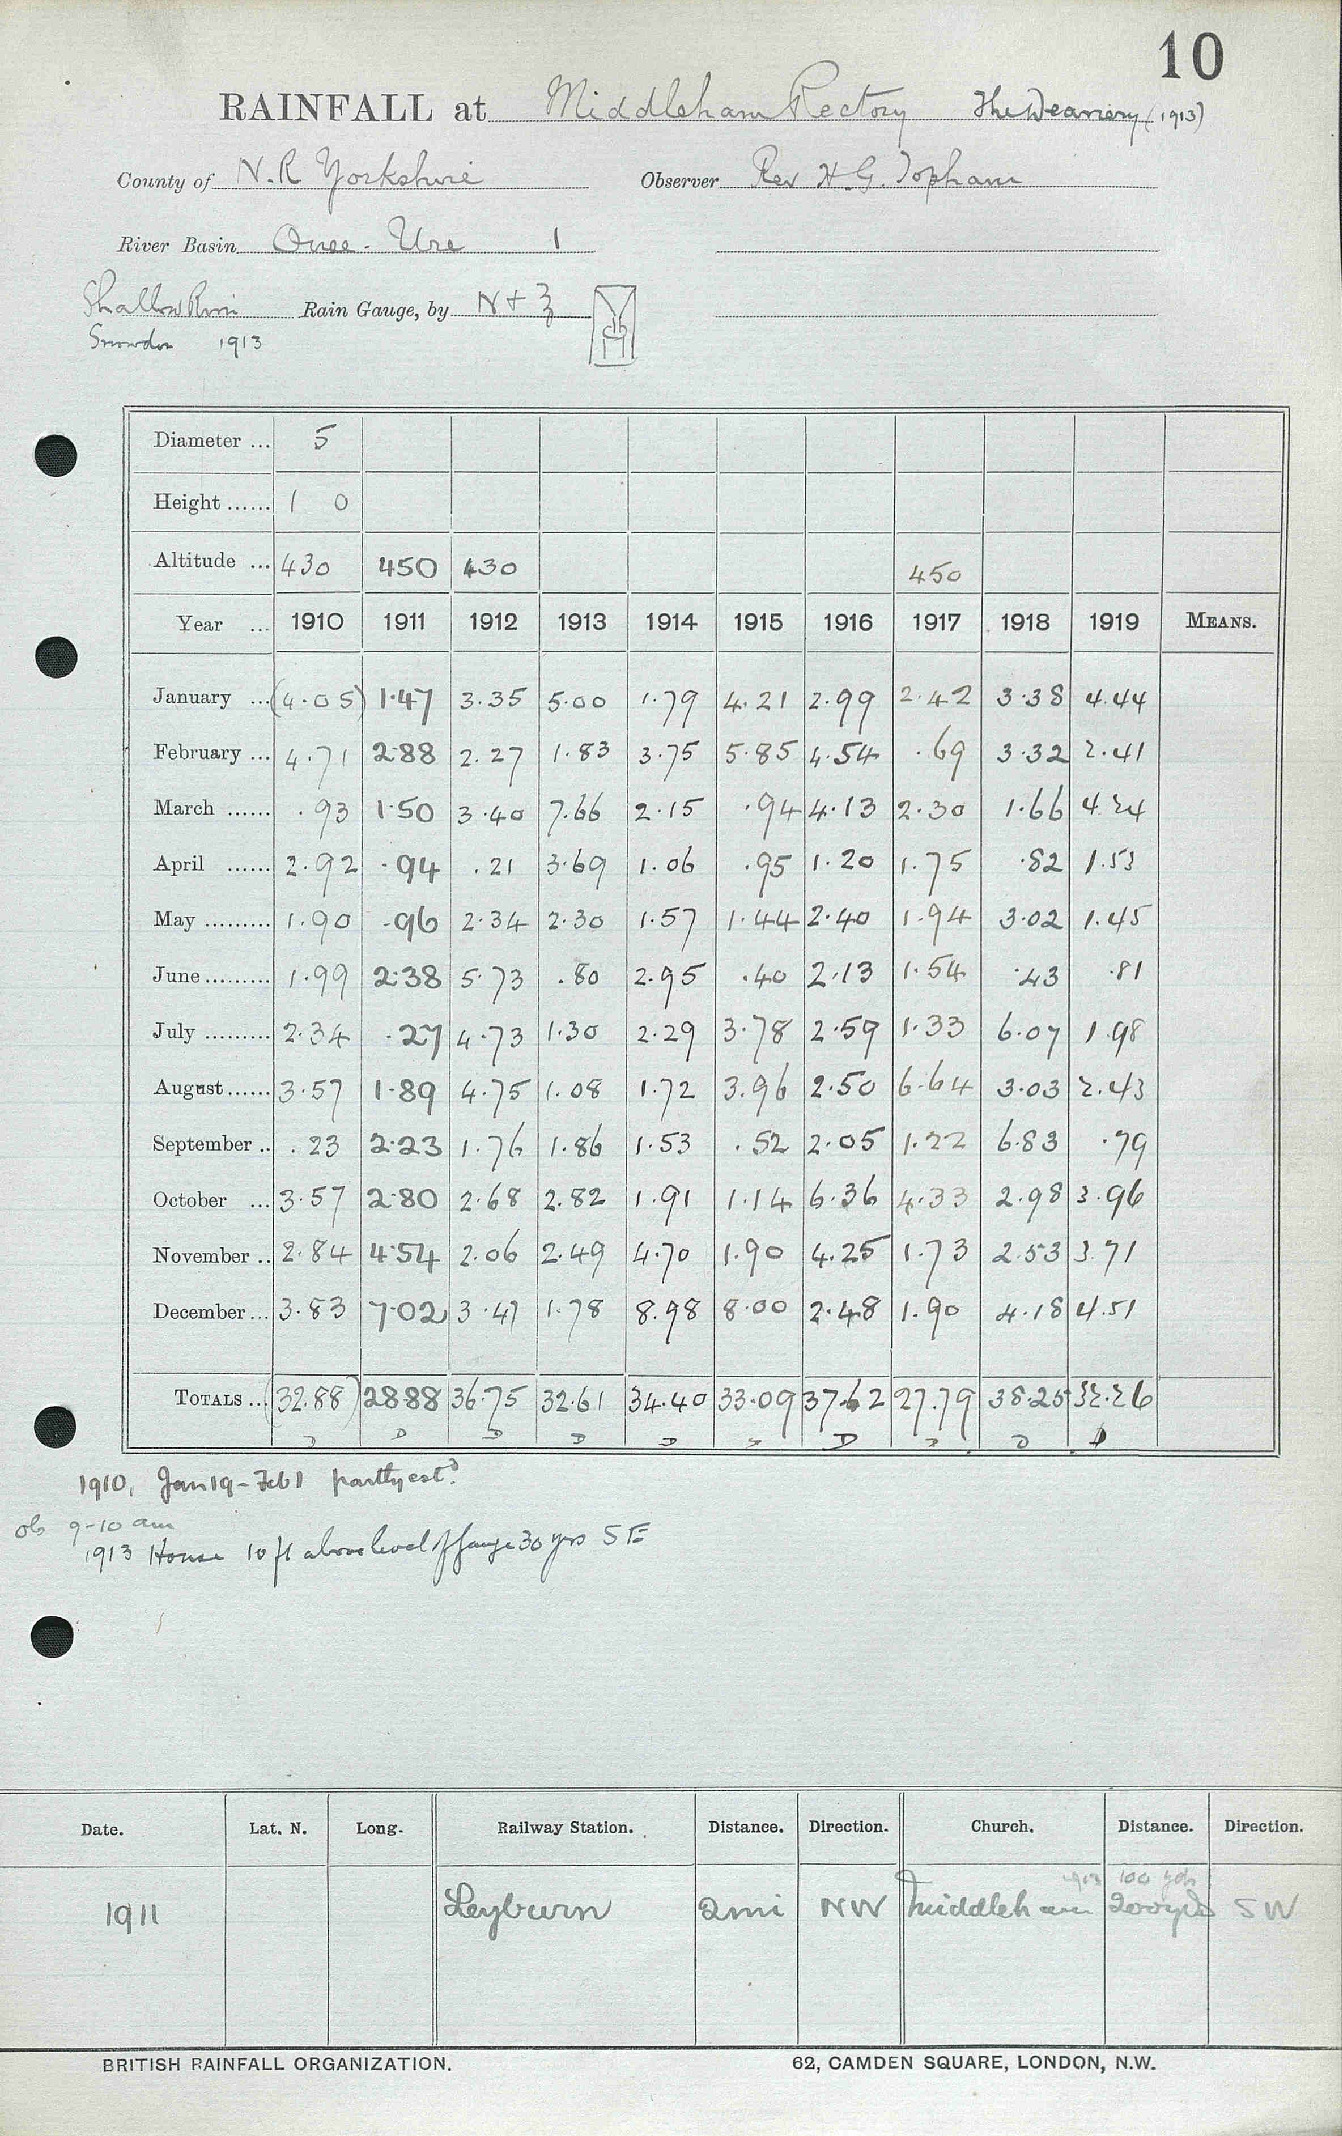 10
RAINFALL at Middleham Rectory The Deanery (1913)
County of N.R Yorkshire Observer Rev H.G. Topham
River Basin Ouse - Ure 1
Shallow Rim Rain Gauge, by N + Z
Snowdon 1913
Diameter ... 5
Height ...... 1 0
Altitude ... 430 450 430 450
Year ... 1910 1911 1912 1913 1914 1915 1916 1917 1918 1919 MEANS.
January ... (4.05) 1.47 3.35 5.00 1.79 4.21 2.99 2.42 3.38 4.44
February ... 4.71 2.88 2.27 1.83 3.75 5.85 4.54 .69 3.32 2.41
March ...... .93 1.50 3.40 7.66 2.15 .94 4.13 2.30 1.66 4.24
April ...... 2.92 .94 .21 3.69 1.06 .95 1.20 1.75 .82 1.53
May ......... 1.90 .96 2.34 2.30 1.57 1.44 2.40 1.94 3.02 1.45
June ......... 1.99 2.38 5.73 .80 2.95 .40 2.13 1.54 .43 .81
July ......... 2.34 .27 4.73 1.30 2.29 3.78 2.59 1.33 6.07 1.98
August ...... 3.57 1.89 4.75 1.08 1.72 3.96 2.50 6.64 3.03 2.43
September .. .23 2.23 1.76 1.86 1.53 .52 2.05 1.22 6.83 .79
October ... 3.57 2.80 2.68 2.82 1.91 1.14 6.36 4.33 2.98 3.96
November .. 2.84 4.54 2.06 2.49 4.70 1.90 4.25 1.73 2.53 3.71
December ... 3.83 7.02 3.47 1.78 8.98 8.00 2.48 1.90 4.18 4.51
TOTALS ... (32.88) 28.88 36.75 32.61 34.40 33.09 37.62 27.79 38.25 32.26
D D D D D D D D D
1910, Jan 19 - Feb 1 partly estd
ob 9-10 am
1913 House 10 ft above level of gauge 30 yds SE
Date. Lat. N. Long. Railway Station. Distance. Direction. Church. Distance. Direction.
1913 100 yds
1911 Leyburn 2mi NW Middleham 200 yds SW
BRITISH RAINFALL ORGANIZATION. 62, CAMDEN SQUARE, LONDON, N.W.